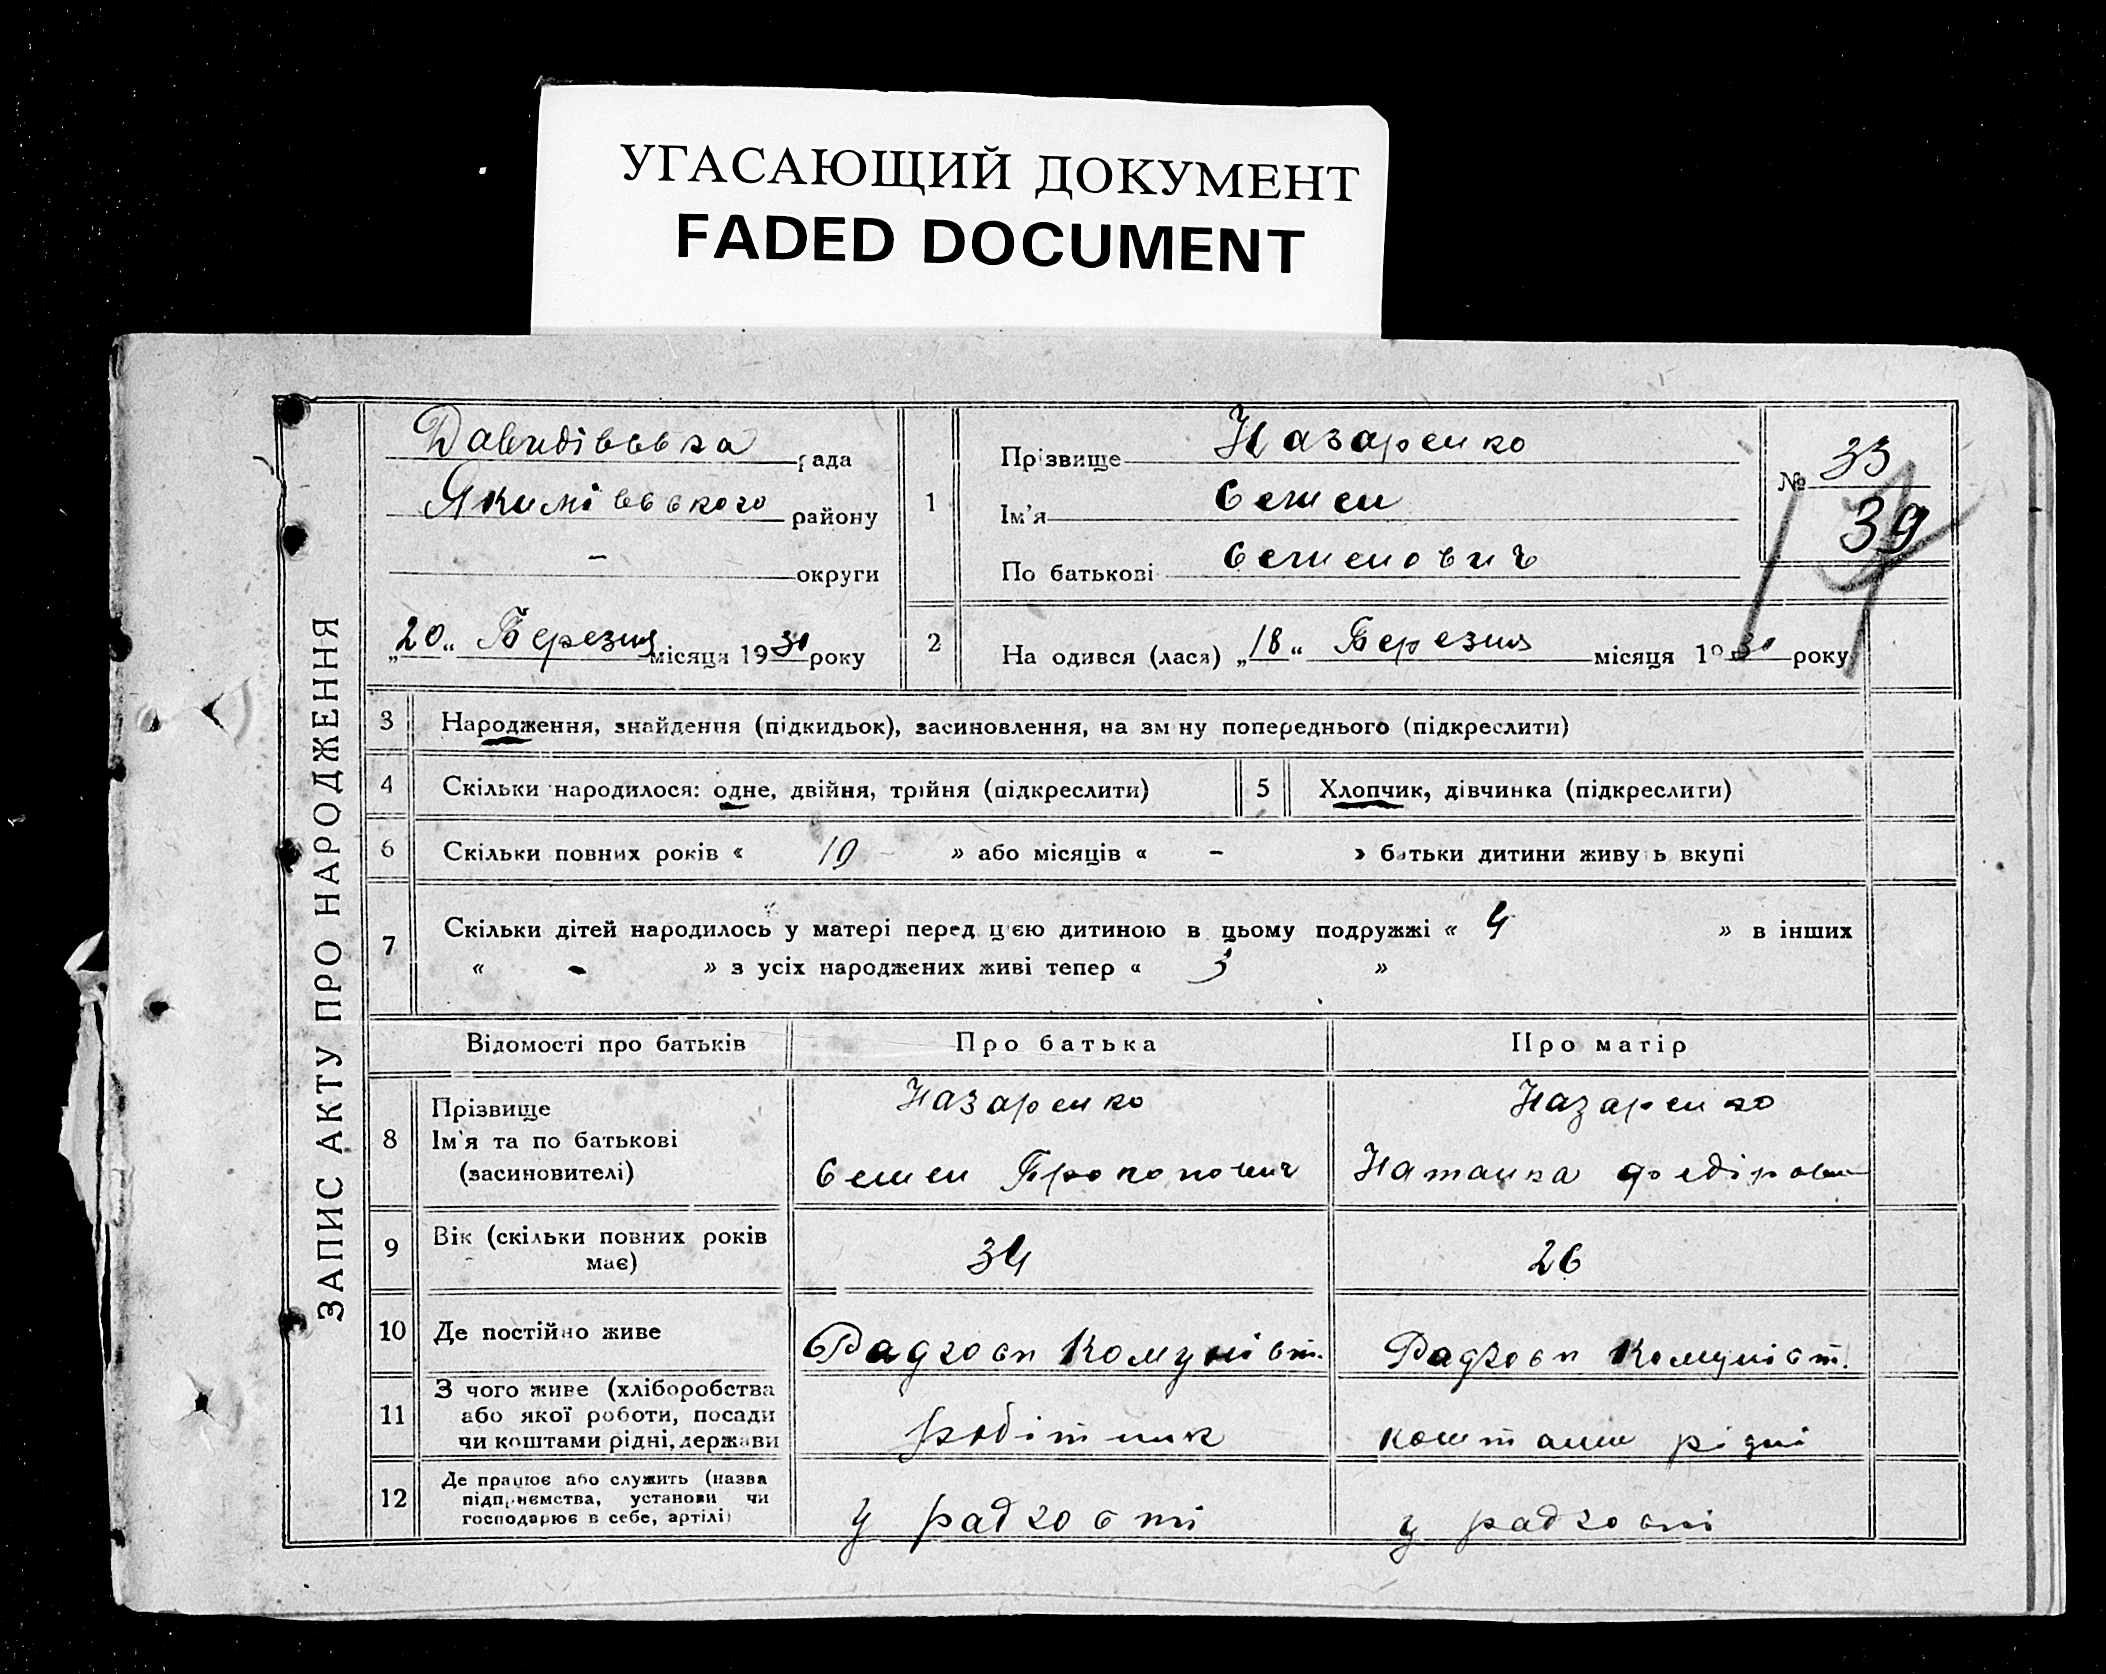 УГАСАЮЩИЙ ДОКУМЕНТ
FADED DOCUMENT
ЗАПИС АКТУ ПРО НАРОДЖЕННЯ
Давидівська рада
Якимівського району
- округи
„20“ Березня місяця 1930 року
1
Прізвище Назаренко
Ім'я Семен
По батькові Семенович
№ 33
39
17
2 На одився (лася) „18“ Березня місяця 1930 року
3 Народження, знайдення (підкидьок), засиновлення, на зм ну попереднього (підкреслити)
4 Скільки народилося: одне, двійня, трійня (підкреслити) 5 Хлопчик, дівчинка (підкреслити)
6 Скільки повних років « 10 - » або місяців « - » батьки дитини живу ь вкупі
7 Скільки дітей народилось у матері перед цією дитиною в цьому подружжі « 4 » в інших
« - » з усіх народжених живі тепер « 3 »
Відомості про батьків Про батька Про матір
8 Прізвище Назаренко Назаренко
Ім'я та по батькові
(засиновителі) Семен Прокопович Наталка Федіровн
9 Вік (скільки повних років
має) 34 26
10 Де постійно живе Радгосп Комуніст. Радгосп Комуніст.
11 З чого живе (хліборобства
або якої роботи, посади
чи коштами рідні, держави робітник коштами рідні
12 Де працює або служить (назва
підприємства, установи чи
господарює в себе, артілі) у радгоспі у радгоспі